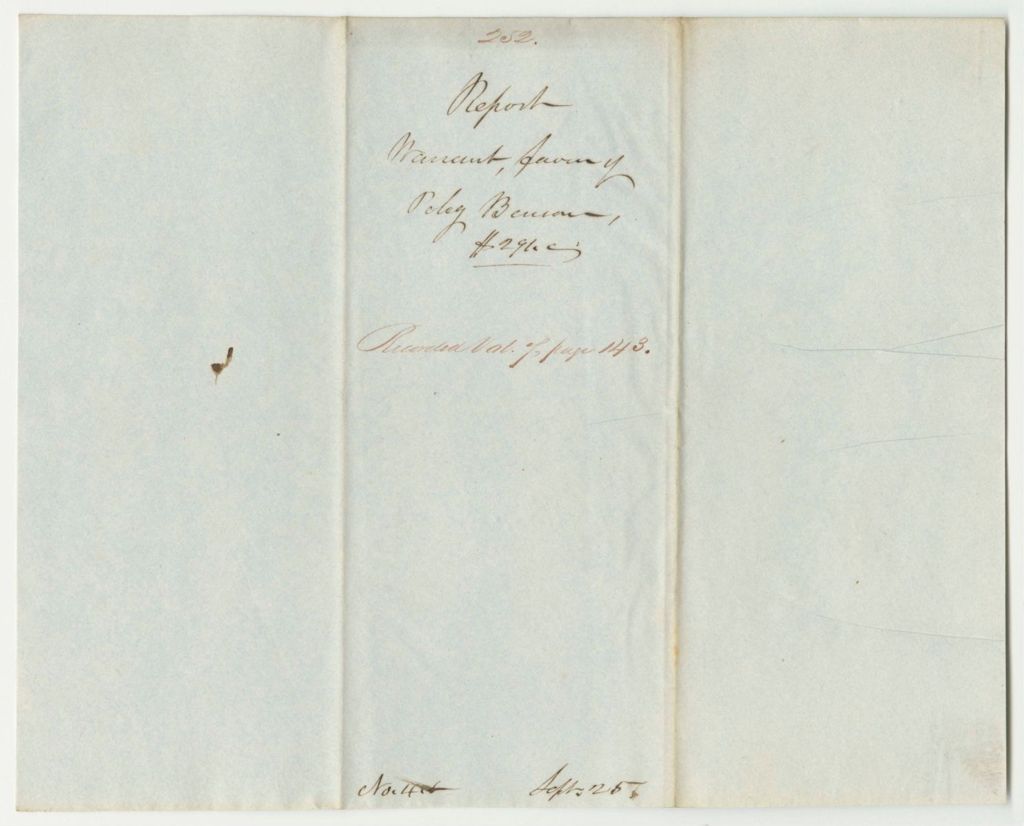 252.
Report
Warrant, favor of
Peleg Benson,
Recorded Vol. 7 page 143.
No. 44
Sept. 25